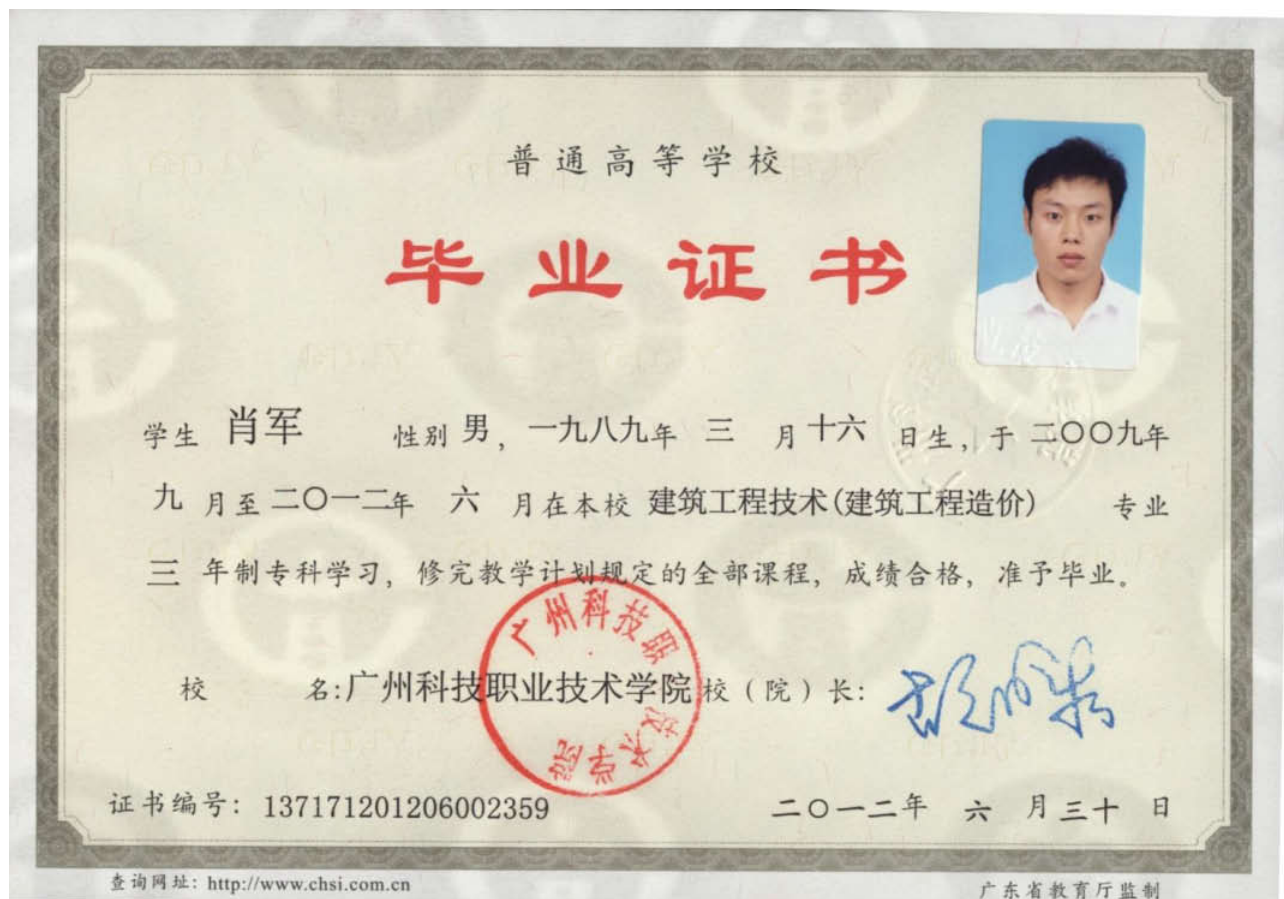 普通高等学校
毕业证书
学生 肖军 性别 男，一九八九年 三 月 十六 日生，于 二〇〇九年
九 月至 二〇一二年 六 月在本校 建筑工程技术(建筑工程造价) 专业
三 年制专科学习，修完教学计划规定的全部课程，成绩合格，准予毕业。
广州科技职业技术学院
校 名:广州科技职业技术学院 校（院）长:
证书编号：137171201206002359 二〇一二年 六 月三十 日
查询网址：http://www.chsi.com.cn 广东省教育厅监制